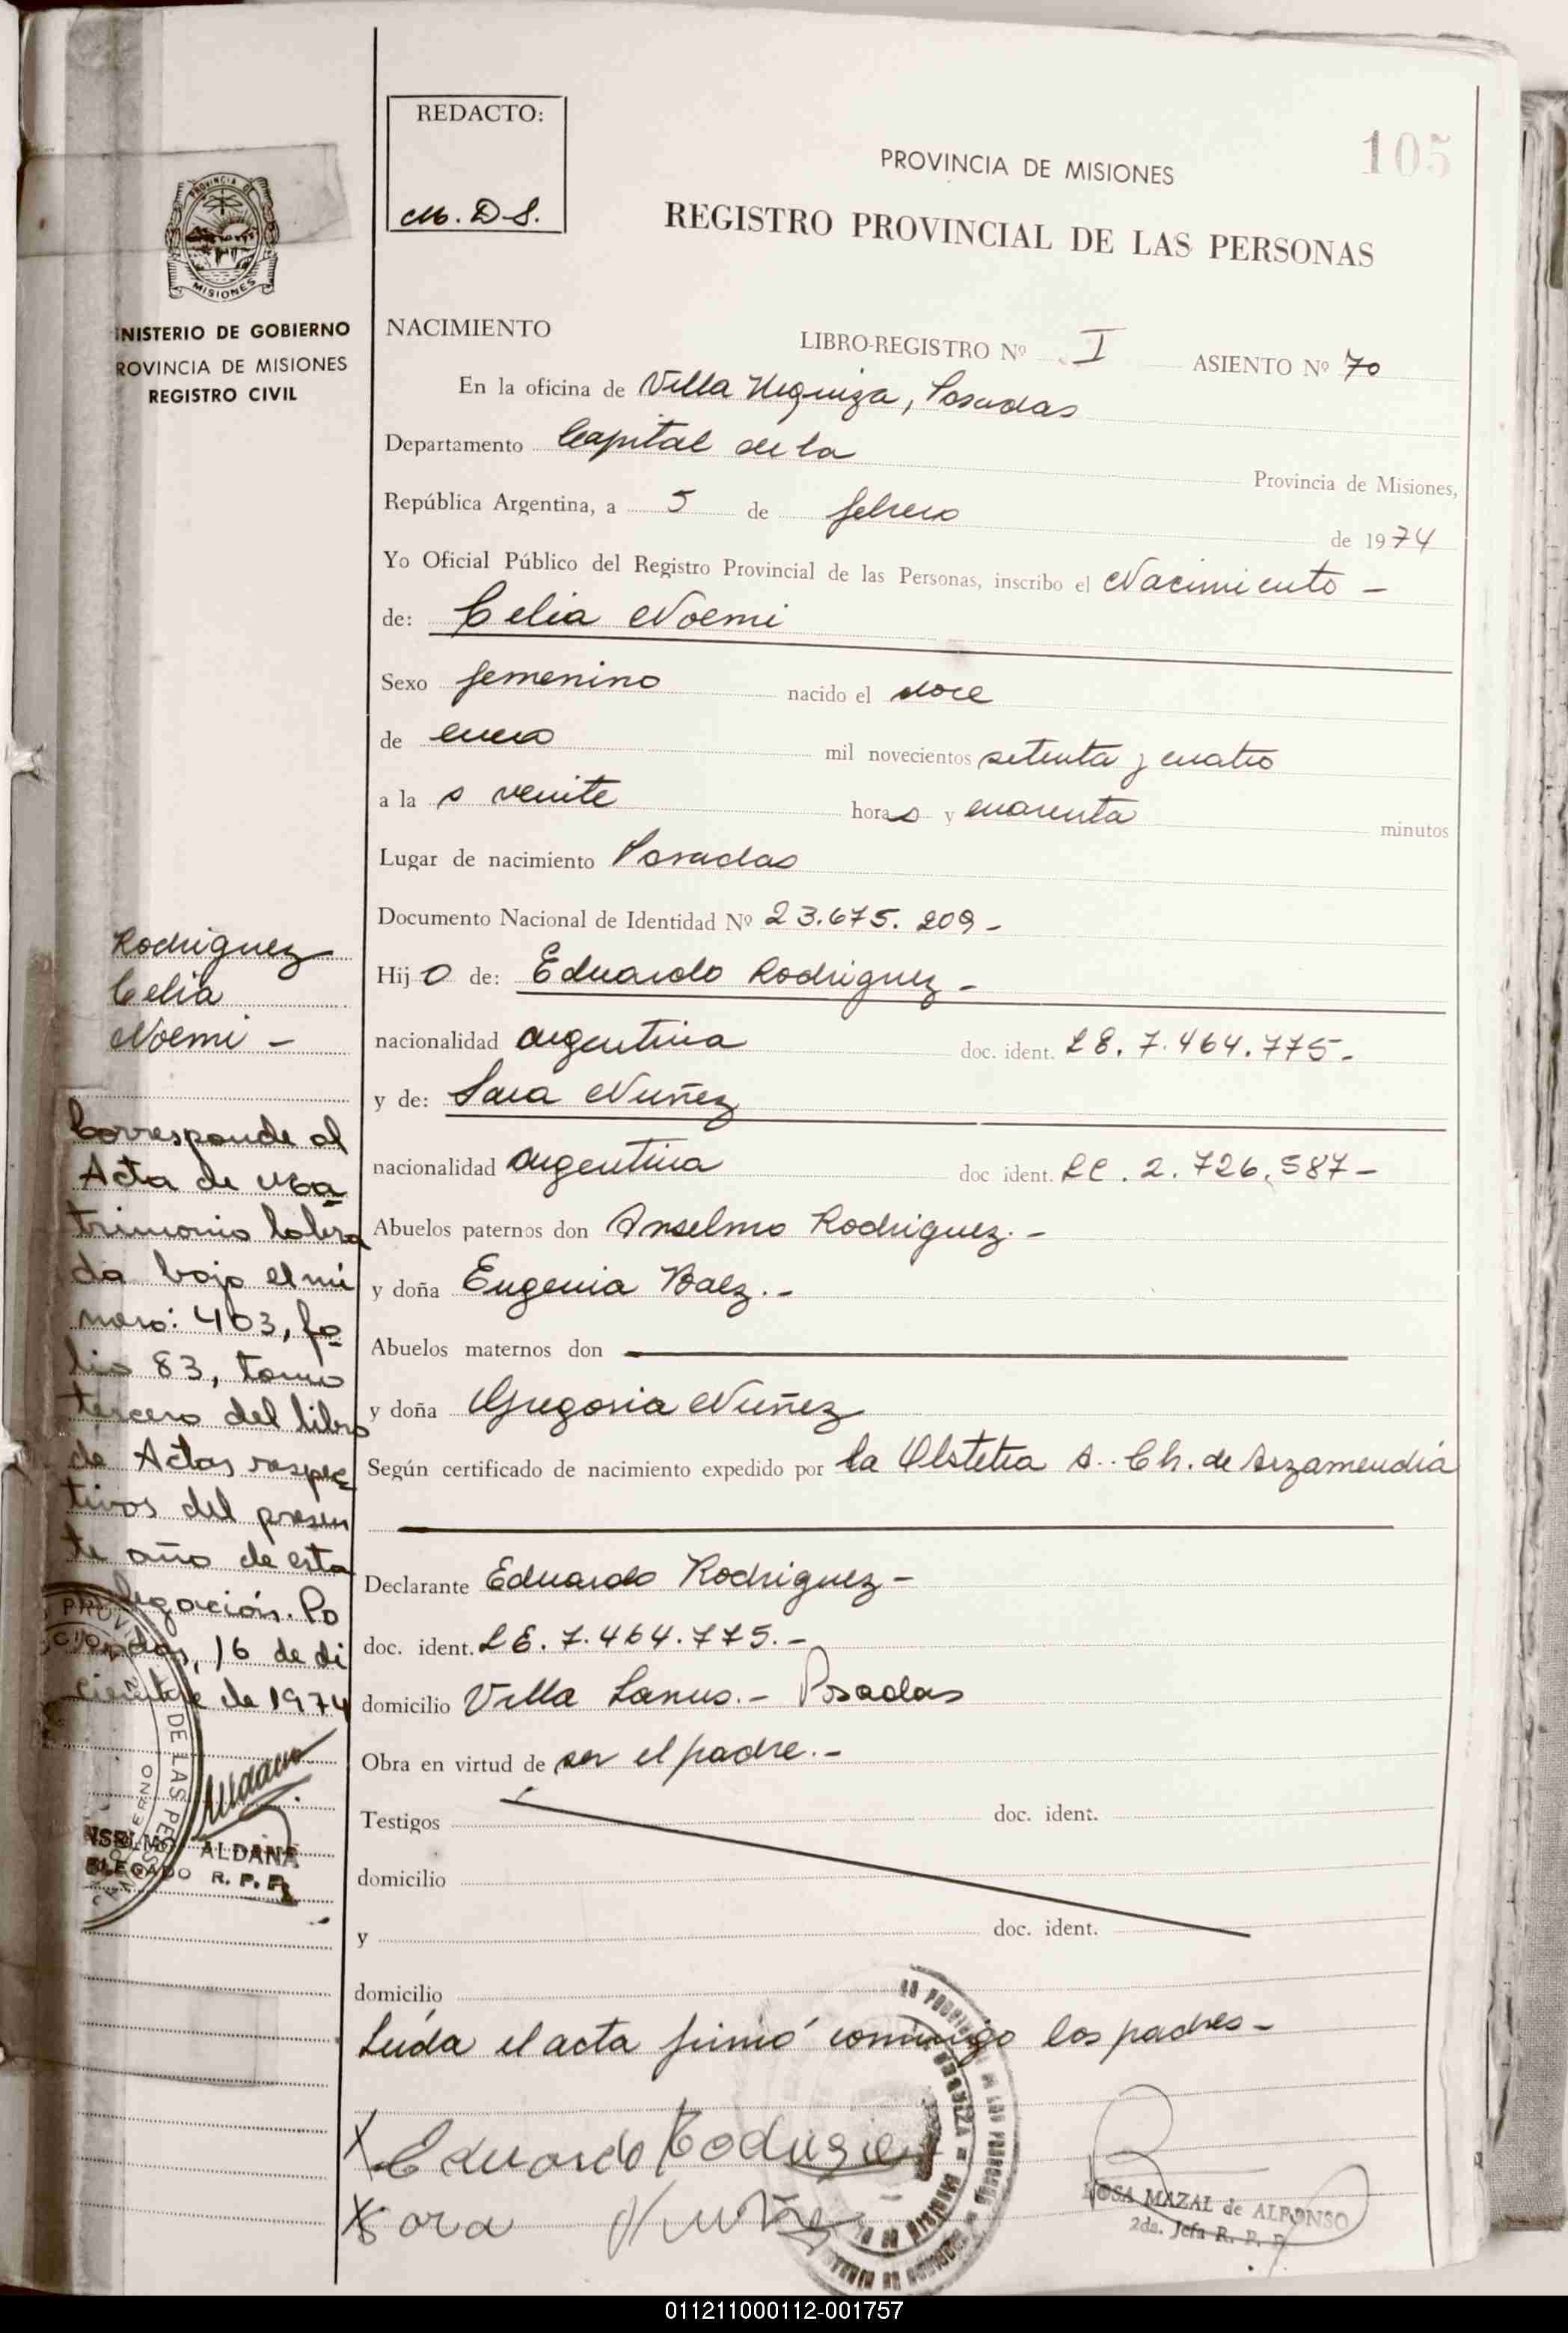 REDACTO:
M. D. S.
105
PROVINCIA DE MISIONES
REGISTRO PROVINCIAL DE LAS PERSONAS
PROVINCIA DE
MISIONES
NISTERIO DE GOBIERNO
ROVINCIA DE MISIONES
REGISTRO CIVIL
NACIMIENTO
LIBRO-REGISTRO Nº I ASIENTO Nº 70
En la oficina de Villa Urquiza, Posadas
Departamento Capital de la Provincia de Misiones,
República Argentina, a 5 de febrero de 1974
Yo Oficial Público del Registro Provincial de las Personas, inscribo el Nacimiento -
de: Celia Noemi
Sexo femenino nacido el doce
de enero mil novecientos setenta y cuatro
a la s veinte horas y cuarenta minutos
Lugar de nacimiento Posadas
Documento Nacional de Identidad Nº 23.675.209-
Hijo de: Eduardo Rodriguez-
nacionalidad argentina doc. ident. LE. 7.464.775-
y de: Sara Nuñez
nacionalidad argentina doc ident. LC. 2.726.587-
Abuelos paternos don Anselmo Rodriguez.-
y doña Eugenia Baez.-
Abuelos maternos don
y doña Gregoria Nuñez
Según certificado de nacimiento expedido por la Obstetra A. Ch. de Arzamendia
Declarante Eduardo Rodriguez-
doc. ident. LE. 7.464.775.-
domicilio Villa Lanus.- Posadas
Obra en virtud de ser el padre.-
Testigos doc. ident.
domicilio
y doc. ident.
domicilio
Leída el acta firmó conmigo los padres-
X Eduardo Rodriguez
X Sara Nuñez
ROSA MAZAL de ALFONSO
2da. Jefa R. P. P.
Rodriguez
Celia
Noemi -
Corresponde al
Acta de Ma
trimonio labra
da bajo el nú
mero: 403, fo
lio 83, tomo
tercero del libro
de Actas respec
tivos del presen
te año de esta
legación. Po
sadas, 16 de di
ciembre de 1974
NSELMO ALDANA
ELEGADO R. P. P.
DE LAS PE
011211000112-001757